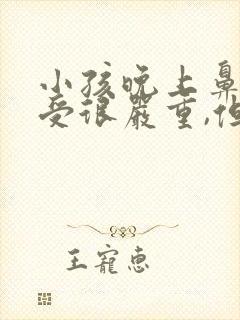 小孩晚上鼻
受很严重,但
王宠惠